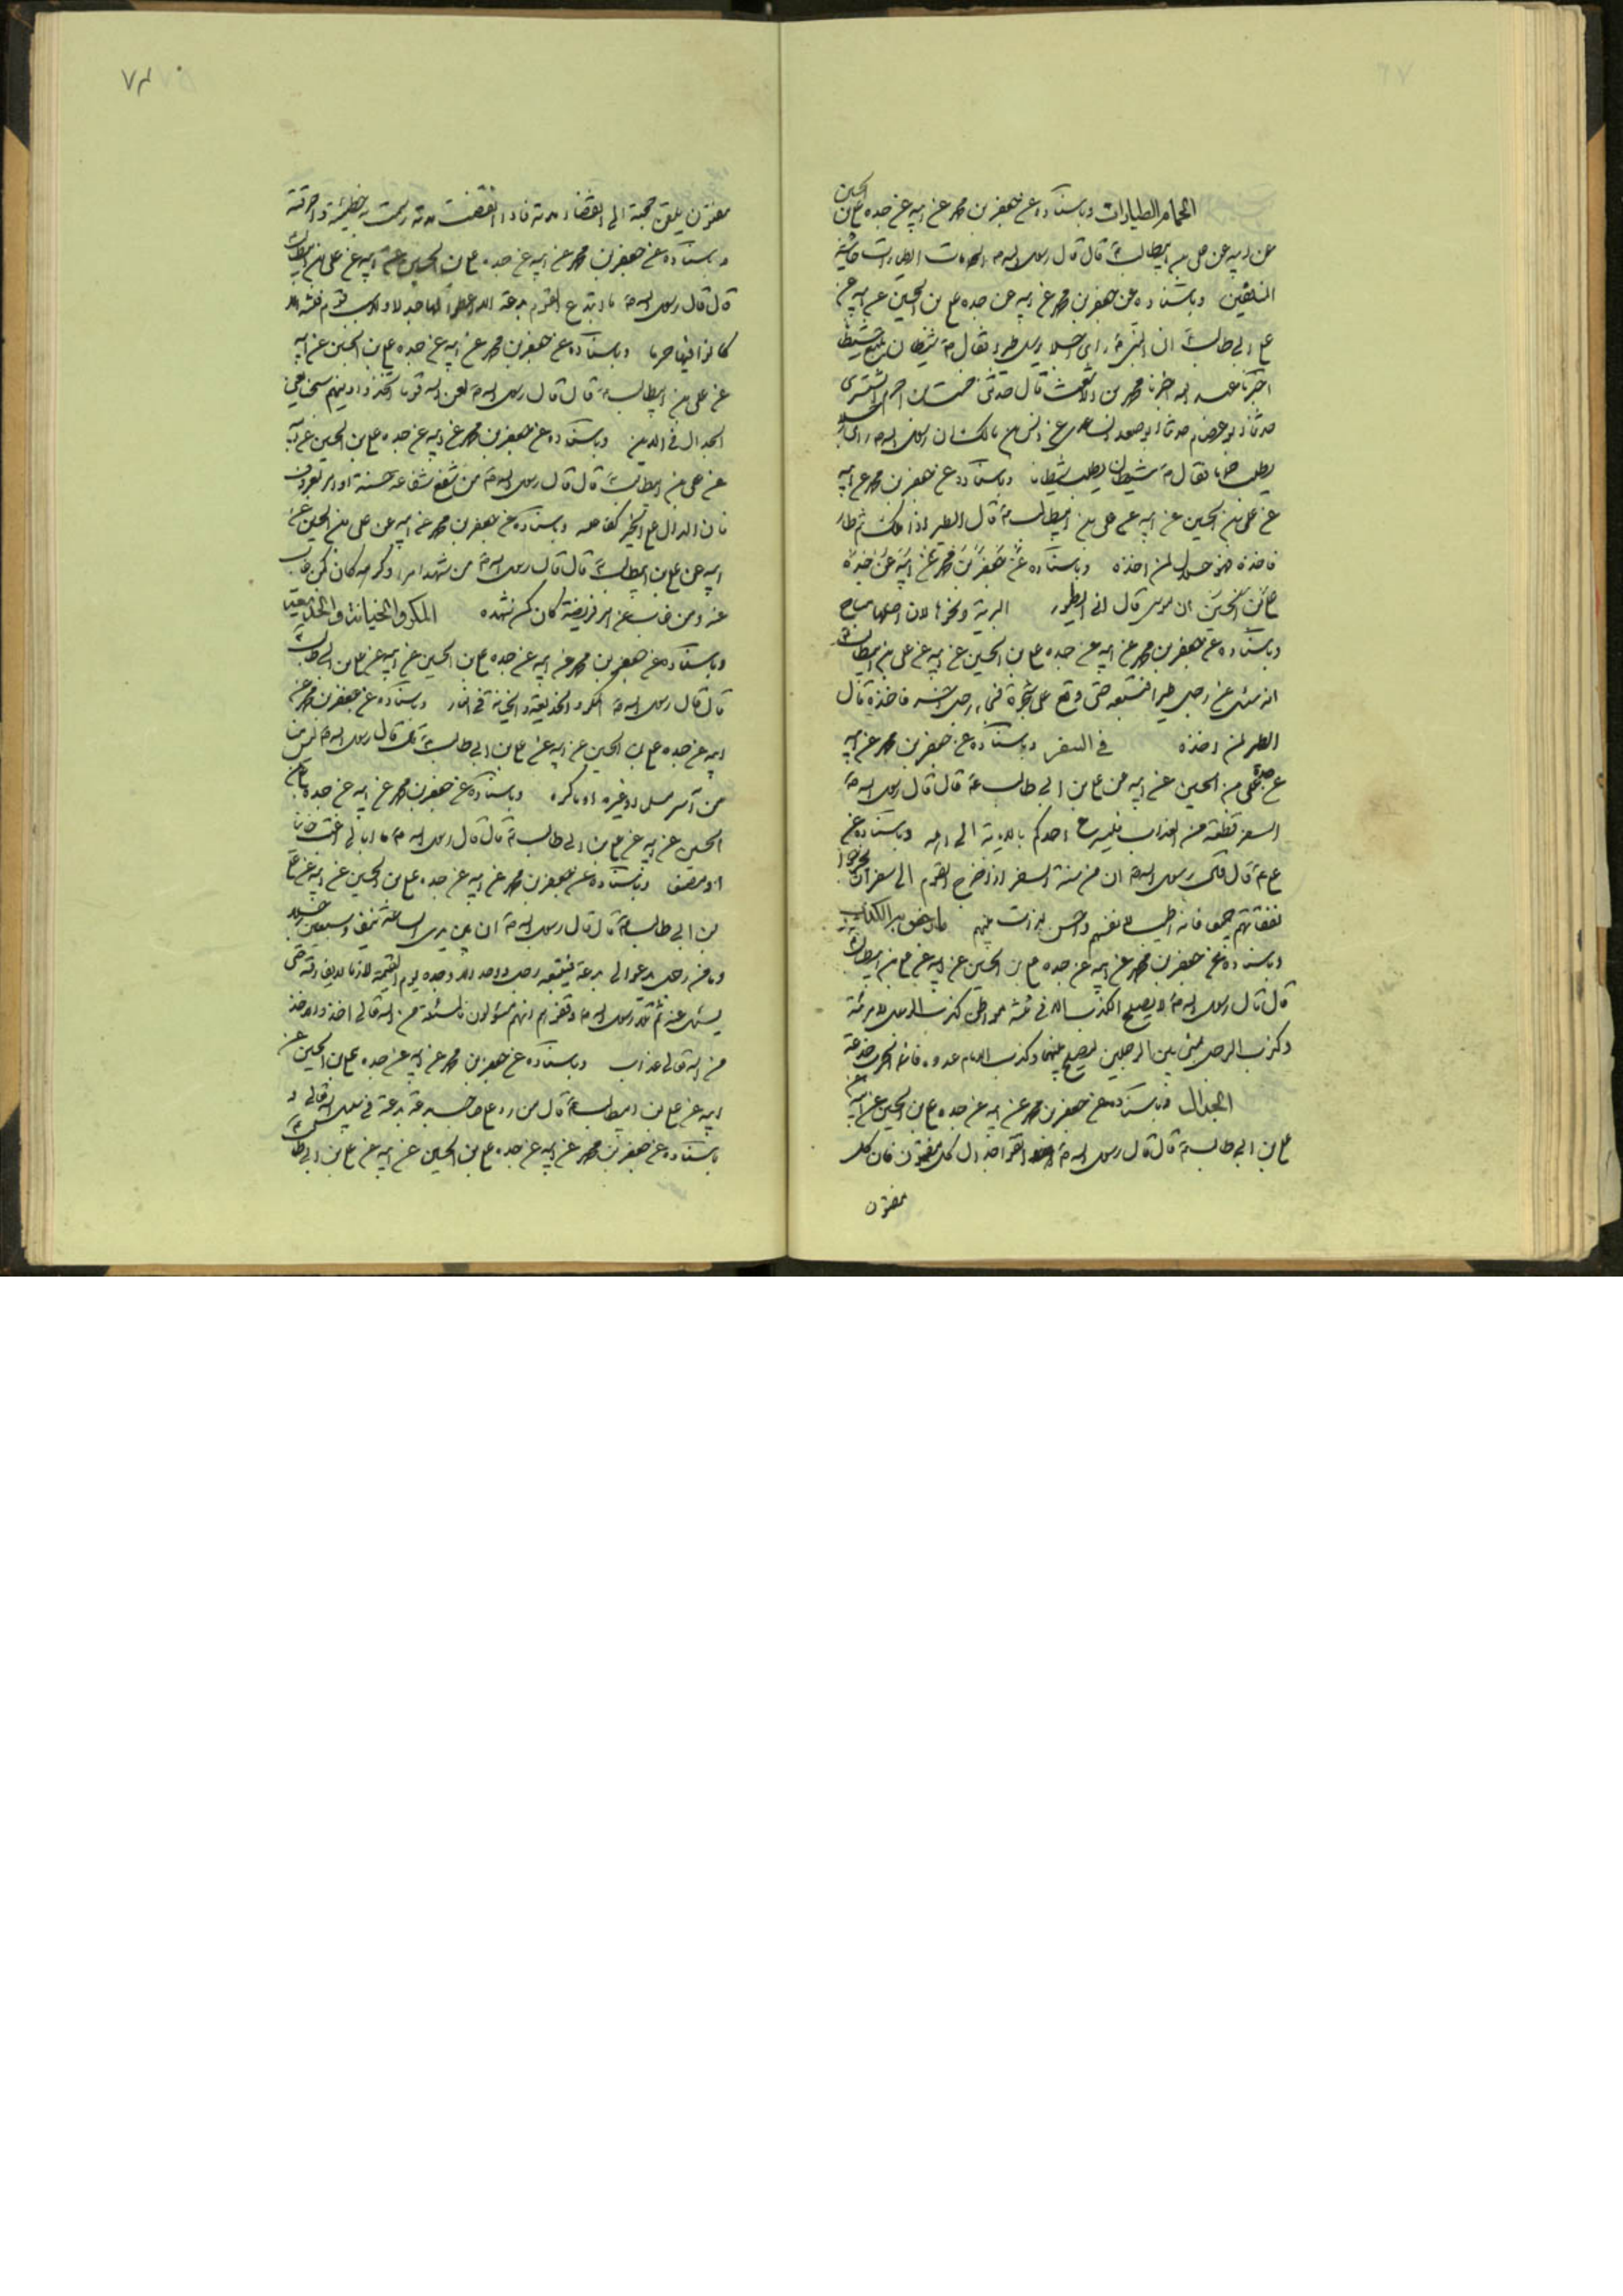 الحمام الطيارات وباسناده عن جعفر بن محمد عن ابيه عن جده علي بن الحسين
عن ابيه عن علي بن ابيطالب ع قال قال رسول اله ص الحمامات الطيارات حاشية
المنافقين وباسناده عن جعفر بن محمد عن ابيه عن جده علي بن الحسين عن ابيه عن
علي بن ابي طالب ع ان النبي ص راى رجلا يرسل طيرا فقال ص شيطان يتبع شيطانا
اخبرنا عبد اله اخبرنا محمد بن الاشعث قال حدثني احمد التستري
حدثنا حدثنا ابو عن انس بن مالك ان رسول اله ص راى رجلا
يطلب حماما فقال ص شيطان يطلب شيطانا وباسناده عن جعفر بن محمد عن ابيه
عن علي بن الحسين عن ابيه عن علي بن ابيطالب ع قال الطير اذا ملك ثم طار
فاخذه فهو حلال لمن اخذه وباسناده عن جعفر بن محمد عن ابيه عن جده
علي بن الحسين ان قال الطيور البرية ونحوها لان اصلها مباح
وباسناده عن جعفر بن محمد عن ابيه عن جده علي بن الحسين عن ابيه عن علي بن ابيطالب ع
انه سئل عن رجل طيرا فتبعه حتى وقع على شجرة فجاء رجل فاخذه قال
الطير لمن اخذه في السفر وباسناده عن جعفر بن محمد عن ابيه
عن جده علي بن الحسين عن ابيه عن علي بن ابي طالب ع قال قال رسول اله ص
السفر قطعة من العذاب فليسرع احدكم بالاوبة الى اهله وباسناده عن
علي ع قال قال رسول اله ص ان من سنة السفر اذا خرج القوم الى سفر ان يخرجوا
نفقاتهم جميعا فانه اطيب لانفسهم واحسن لذات بينهم ما رخص به الكذب
وباسناده عن جعفر بن محمد عن ابيه عن جده علي بن الحسين عن ابيه عن علي بن ابيطالب ع
قال قال رسول اله ص لا يصلح الكذب الا في ثلثة مواطن كذب الرجل لامرئته
وكذب الرجل يمشي بين الرجلين ليصلح بينهما وكذب الامام عدوه فانما الحرب خدعة
الجدال وباسناده عن جعفر بن محمد عن ابيه عن جده علي بن الحسين عن ابيه عن
علي بن ابي طالب ع قال قال رسول اله ص اتقوا جدال كل مفتون فان كل
مفتون
مفتون يلقن حجته الى انقضاء مدته فاذا انقضت مدته خطيئته واحرقته
وباسناده عن جعفر بن محمد عن ابيه عن جده علي بن الحسين عن ابيه عن علي بن ابيطالب ع
قال قال رسول اله ص ما ابتدع القوم بدعة الا اعطوا لها جدلا
كانوا فيها حربا وباسناده عن جعفر بن محمد عن ابيه عن جده علي بن الحسين عن ابيه
عن علي بن ابيطالب ع قال قال رسول اله ص لعن اله قوما اتخذوا دينهم يعني
الجدال في الدين وباسناده عن جعفر بن محمد عن ابيه عن جده علي بن الحسين عن ابيه
عن علي بن ابيطالب ع قال قال رسول اله ص من شفع شفاعة حسنة او امر بمعروف
فان الدال على الخير كفاعله وباسناده عن جعفر بن محمد عن ابيه عن علي بن الحسين عن
ابيه عن علي بن ابيطالب ع قال قال رسول اله ص من شهد امرا وكرهه كان كمن غاب
عنه ومن غاب عن امر فرضيه كان كمن شهده المكر والخيانت والخديعة
وباسناده عن جعفر بن محمد عن ابيه عن جده علي بن الحسين عن ابيه عن علي بن ابي طالب ع
قال قال رسول اله ص المكر والخديعة والخيانة في النار وباسناده عن جعفر بن محمد عن
ابيه عن جده علي بن الحسين عن ابيه عن علي بن ابي طالب ع قال قال رسول اله ص ليس منا
من وباسناده عن جعفر بن محمد عن ابيه عن جده علي بن
الحسين عن ابيه عن علي بن ابي طالب ع قال قال رسول اله ص ما ابالي ائتمنت خائنا
او مضيعا وباسناده عن جعفر بن محمد عن ابيه عن جده علي بن الحسين عن ابيه عن علي
بن ابي طالب ع قال قال رسول اله ص ان بين يدي الساعة نيف وسبعين رجلا
وما من رجل يدعوا الى بدعة فيتبعه رجل واحد الا وجده يوم القيمة لازما لا يفارقه حتى
يسئل عنه ثم تلا رسول اله ص وقفوهم انهم مسئولون فالمسئلة من اله تعالى اخذ والاخذ
من اله تعالى عذاب وباسناده عن جعفر بن محمد عن ابيه عن جده علي بن الحسين عن
ابيه عن علي بن ابيطالب ع قال من رد على صاحب بدعة بدعته فهو في سبيل اله تعالى و
باسناده عن جعفر بن محمد عن ابيه عن جده علي بن الحسين عن ابيه عن علي بن ابي طالب ع